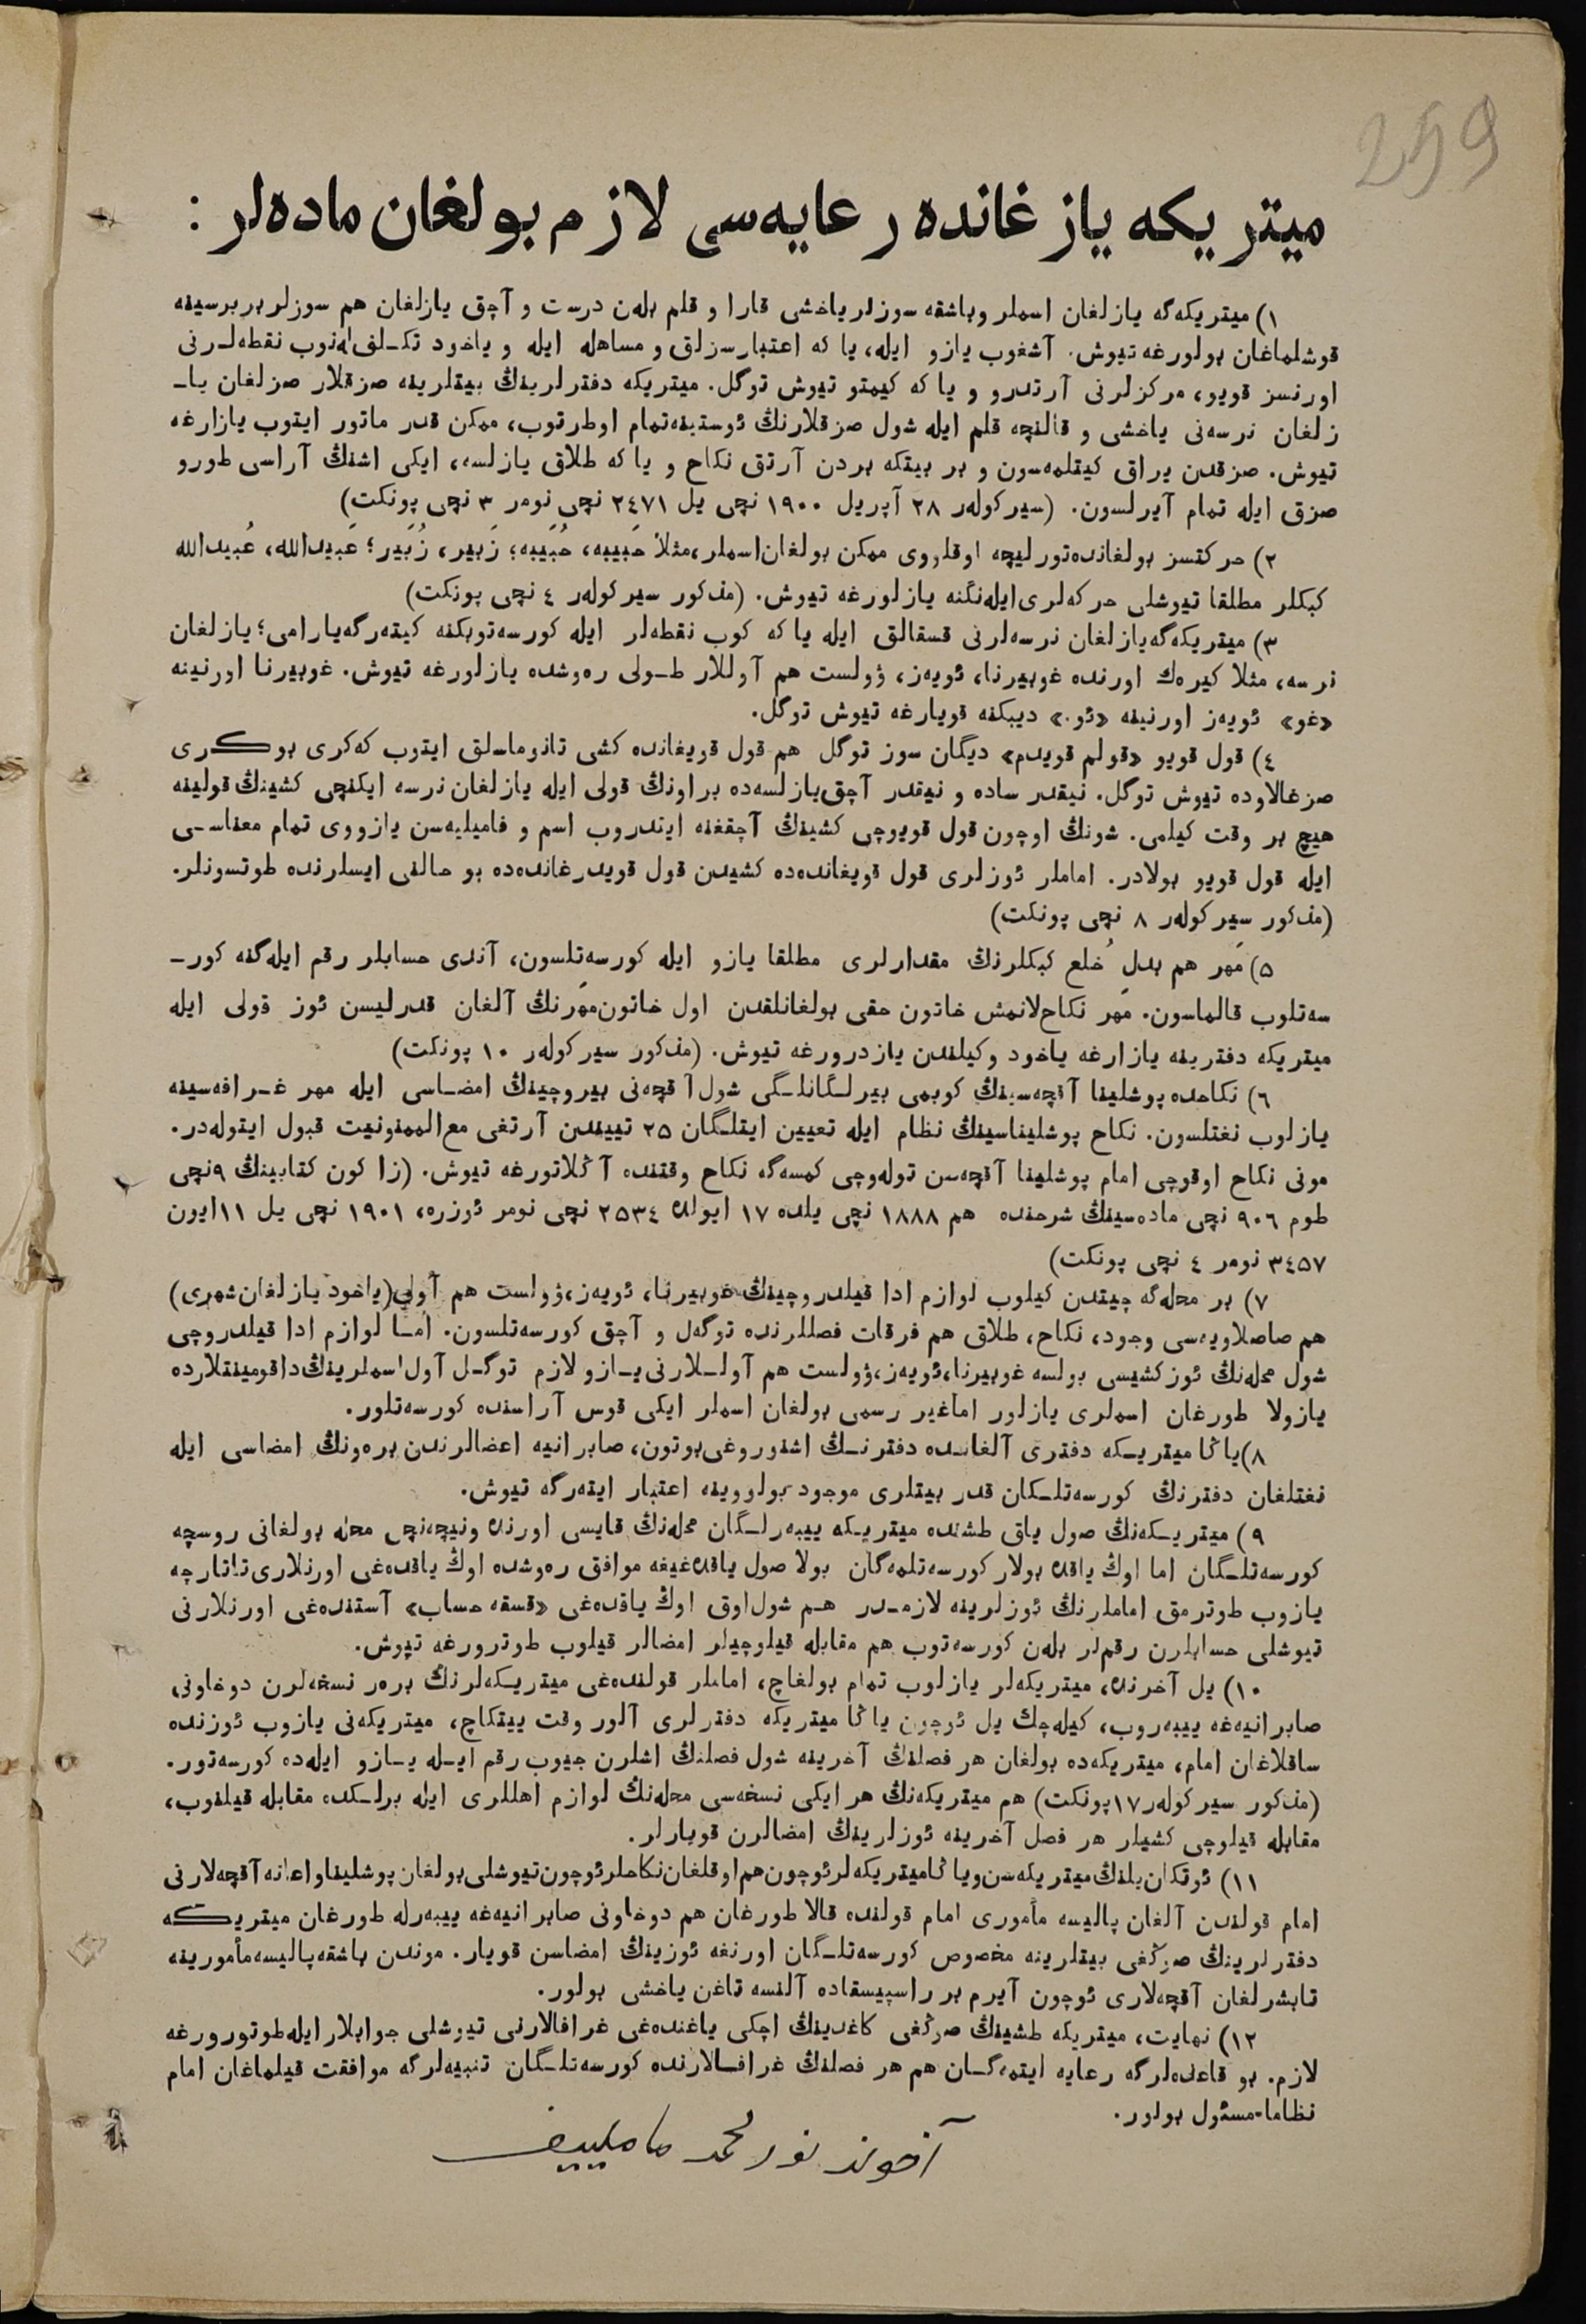 259
میتریکه یازغانده رعایه‌سی لازم بولغان ماده‌لر :
١) میتریکه‌گه یازلغان اسملر وباشقه سوزلر یاخشی قارا و قلم بله‌ن درست و آچق یازلغان هم سوزلر بربرسینه
قوشلماغان بولورغه تیوش. آشغوب یازو ایله، یا که اعتبارسزلق و مساهله ایله و یاخود تکـلف له‌نوب نقطه‌لـرنی
اورنسز قویو، مرکزلرنی آرتدرو و یا که کیمتو تیوش توگل. میتریکه دفترلرینڭ بیتلرینه صزقلار صزلغان یاـ
زلغان نرسه‌نی یاخشی و قالنچه قلم ایله شول صزقلارنڭ ئوستینه‌تمام اوطرتوب، ممکن قدر ماتور ایتوب یازارغه
تیوش. صزقدن یراق کیتلمه‌سون و بر بیتکه بردن آرتق نکاح و یا که طلاق یازلسه، ایکی اشنڭ آراسی طورو
صزق ایله تمام آیرلسون. (سیرکوله‌ر ٢٨ آپریل ١٩٠٠ نچی یل ٢٤٧١ نچی نومر ٣ نچی پونکت)
٢) حرکتسز بولغانده‌تورلیچه اوقلووی ممکن بولغان‌اسملر، مثلاً حَبیبه، حُبَیبه؛ زَبیر، زُبَیر؛ عَبیدالله، عُبیدالله
کبکلر مطلقا تیوشلی حرکه‌لری‌ایله‌نگنه یازلورغه تیوش. (مذکور سیرکوله‌ر ٤ نچی پونکت)
٣) میتریکه‌گه‌یازلغان نرسه‌لرنی قسقالق ایله یا که کوب نقطه‌لر ایله کورسه‌توبکنه کیته‌رگه‌یارامی؛ یازلغان
نرسه، مثلا کیره‌ك اورنده غوبیرنا، ئویه‌ز، ۋولست هم آوللار طـولی ره‌وشده یازلورغه تیوش. غوبیرنا اورنینه
«غو» ئویه‌ز اورنینه «ئو.» دیبکنه قویارغه تیوش توگل.
٤) قول قویو «قولم قویدم» دیگان سوز توگل هم قول قویغانده کشی تانوماسلق ایتوب که‌کری بوکـری
صزغالاوده تیوش توگل. نیقدر ساده و نیقدر آچق‌یازلسه‌ده براونڭ قولی ایله یازلغان نرسه ایکنچی کشینڭ قولینه
هیچ بر وقت کیلمی. شونڭ اوچون قول قویوچی کشینڭ آچقغنه ایتدروب اسم و فامیلیه‌سن یازووی تمام معناسـی
ایله قول قویو بولادر. اماملر ئوزلری قول قویغانده‌ده کشیدن قول قویدرغانده‌ده بو حالنی ایسلرنده طوتسونلر.
(مذکور سیرکوله‌ر ٨ نچی پونکت)
٥) مَهر هم بدلِ خُلع کبکلرنڭ مقدارلری مطلقا یازو ایله کورسه‌تلسون، آندی حسابلر رقم ایله‌گنه کورـ
سه‌تلوب قالماسون. مَهر نکاح‌لانمش خاتون حقی بولغانلقدن اول خاتون‌مَهرنڭ آلغان قدرلیسن ئوز قولی ایله
میتریکه دفترینه یازارغه یاخود وکیلندن یازدرورغه تیوش. (مذکور سیرکوله‌ر ١٠ پونکت)
٦) نکاحده پوشلینا آقچه‌سینڭ کوبمی بیرلـگانلـگی شول آقچه‌نی بیروچینڭ امضـاسی ایله مهر غـرافه‌سینه
یازلوب نغتلسون. نکاح پوشلیناسینڭ نظام ایله تعیین ایتلـگان ٢٥ تییندن آرتغی مع‌الممنونیت قبول ایتوله‌در.
مونی نکاح اوقوچی امام پوشلینا آقچه‌سن توله‌وچی کمسه‌گه نکاح وقتنده آڭلاتورغه تیوش. (زاکون کتابینڭ ٩نچی
طوم ٩٠٦ نچی ماده‌سینڭ شرحنده هم ١٨٨٨ نچی یلده ١٧ ایولده ٢٥٣٤ نچی نومر ئوزره، ١٩٠١ نچی یل ١١ایون
٣٤٥٧ نومر ٤ نچی پونکت)
٧) بر محله‌گه چیتدن کیلوب لوازم ادا قیلدروچینڭ غوبیرنا، ئویه‌ز،ۋولست هم آولی(یاخود یازلغان‌شهری)
هم صاصلاویه‌سی وجود، نکاح، طلاق هم فرقات فصللرنده توگه‌ل و آچق کورسه‌تلسون. امـا لوازم ادا قیلدروچی
شول محله‌نڭ ئوزکشیسی بولسه غوبیرنا،ئویه‌ز،ۋولست هم آولـلارنی‌یـازو لازم توگـل آول‌اسملرینڭ‌داقومینتلارده
یازولا طورغان اسملری یازلور اماغیر رسمی بولغان اسملر ایکی قوس آراسنده کورسه‌تلور.
٨)یاڭا میتریـکه دفتری آلغانـده دفترنـڭ اشنوروغی‌بوتون، صابرانیه اعضالرندن بره‌ونڭ امضاسی ایله
نغتلغان دفترنڭ کورسه‌تلـگان قدر بیتلری موجود بولووینه اعتبار ایته‌رگه تیوش.
٩) میتریـکه‌نڭ صول یاق طشنده میتریـکه ییبه‌رلـگان محله‌نڭ قایسی اورنده ونیچه‌نچی محله بولغانی روسچه
کورسه‌تلـگان اما اوڭ یاقده بولار کورسه‌تلمه‌گان بولا صول یاقده‌غیغه موافق ره‌وشده اوڭ یاقده‌غی اورنلاری‌تاتارچه
یازوب طوترمق اماملرنڭ ئوزلرینه لازمـدر هـم شول‌اوق اوڭ یاقده‌غی «قسقه حساب» آستنده‌غی اورنلارنی
تیوشلی حسابلرن رقملر بله‌ن کورسه‌توب هم مقابله قیلوچیلر امضالر قیلوب طوترورغه تیوش.
١٠) یل آخرنده، میتریکه‌لر یازلوب تمام بولغاچ، اماملر قولنده‌غی میتریـکه‌لرنڭ بره‌ر نسخه‌لرن دوخاونی
صابرانیه‌غه ییبه‌روب، کیله‌چك یل ئوچون یاڭا میتریکه دفترلری آلور وقت ییتکاچ، میتریکه‌نی یازوب ئوزنده
ساقلاغان امام، میتریکه‌ده بولغان هر فصلنڭ آخرینه شول فصلنڭ اشلرن جیوب رقم ایـله یـازو ایله‌ده کورسه‌تور.
(مذکور سیرکوله‌ر ١٧پونکت) هم میتریکه‌نڭ هر ایکی نسخه‌سی محله‌نڭ لوازم اهللری ایله برلـکده مقابله قیلنوب،
مقابله قیلوچی کشیلر هر فصل آخرینه ئوزلرینڭ امضالرن قویارلر.
١١) ئوتکان‌یلنڭ میتریکه‌سن ویاڭامیتریکه‌لرئوچون‌هم‌اوقلغان‌نکاحلرئوچون‌تیوشلی‌بولغان‌پوشلیناواعانه آقچه‌لارنی
امام قولندن آلغان پالیسه مأموری امام قولنده قالا طورغان هم دوخاونی صابرانیه‌غه ییبه‌رله طورغان میتریـکه
دفترلرینڭ صوڭغی بیتلرینه مخصوص کورسه‌تلـگان اورنغه ئوزینڭ امضاسن قویار. موندن باشقه‌پالیسه‌مأمورینه
تابشرلغان آقچه‌لاری ئوچون آیرم بر راسپیسقاده آلنسه تاغن یاخشی بولور.
١٢) نهایت، میتریکه طشینڭ صوڭغی کاغدینڭ اچکی یاغنده‌غی غرافالارنی تیوشلی جوابلارایله‌طوتورورغه
لازم. بو قاعده‌لرگه رعایه ایتمه‌گـان هم هر فصلنڭ غرافـالارنده کورسه‌تلـگان تنبیه‌لرگه موافقت قیلماغان امام
نظاما-مسئول بولور.
آخوند نورمحمد ماملییف